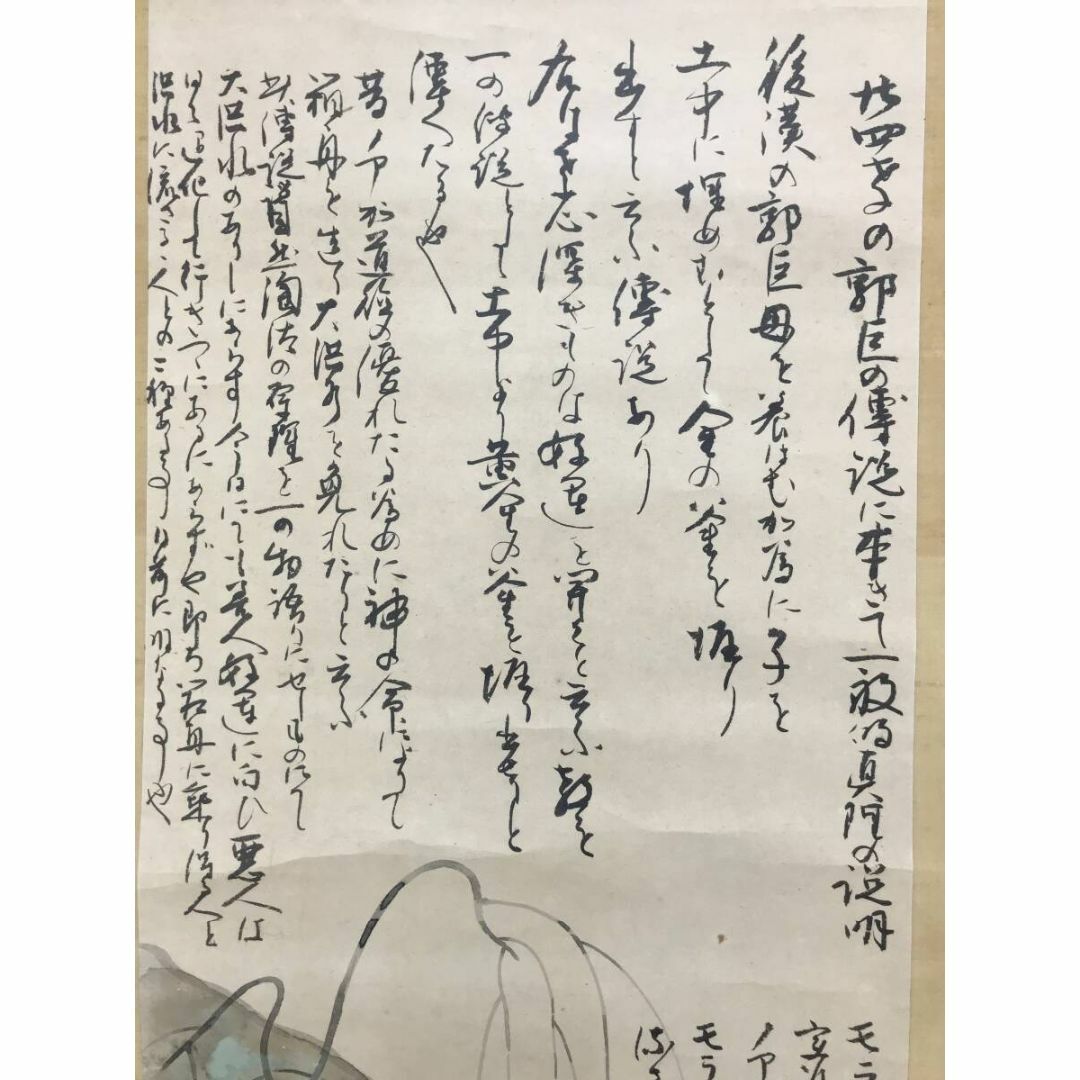 廿四孝の郭巨の傳説に本きて一般的真理の説明
後漢の郭巨母を養はむか為に子を
土中に埋めむとして金の釜を堀り
出すと云ふ傳説あり
右は孝心深きものは好運を開くと云ふ教を
一の傳説として土中より黄金の釜を堀り出すと
傳へたる也
昔ノアか道徳の優れたる為めに神の命により
箱舟を造り大洪水を免れたりと云ふ
此傳説自然淘汰の原理を一の物語りにせしものにて
大洪水のありしにあらす今日にても善人好運に向ひ悪人は
行きつゝあるにあらずや即ち箱舟に乗り得る人と
洪水に流さるゝ人との二種あるの事日前に明なる事也
モラ
ノア
モラ